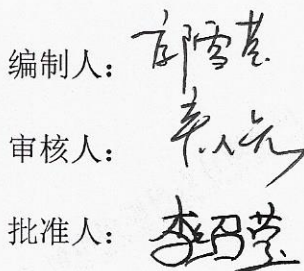 编制人：郭雪莹
审核人：
批准人：李绍莹